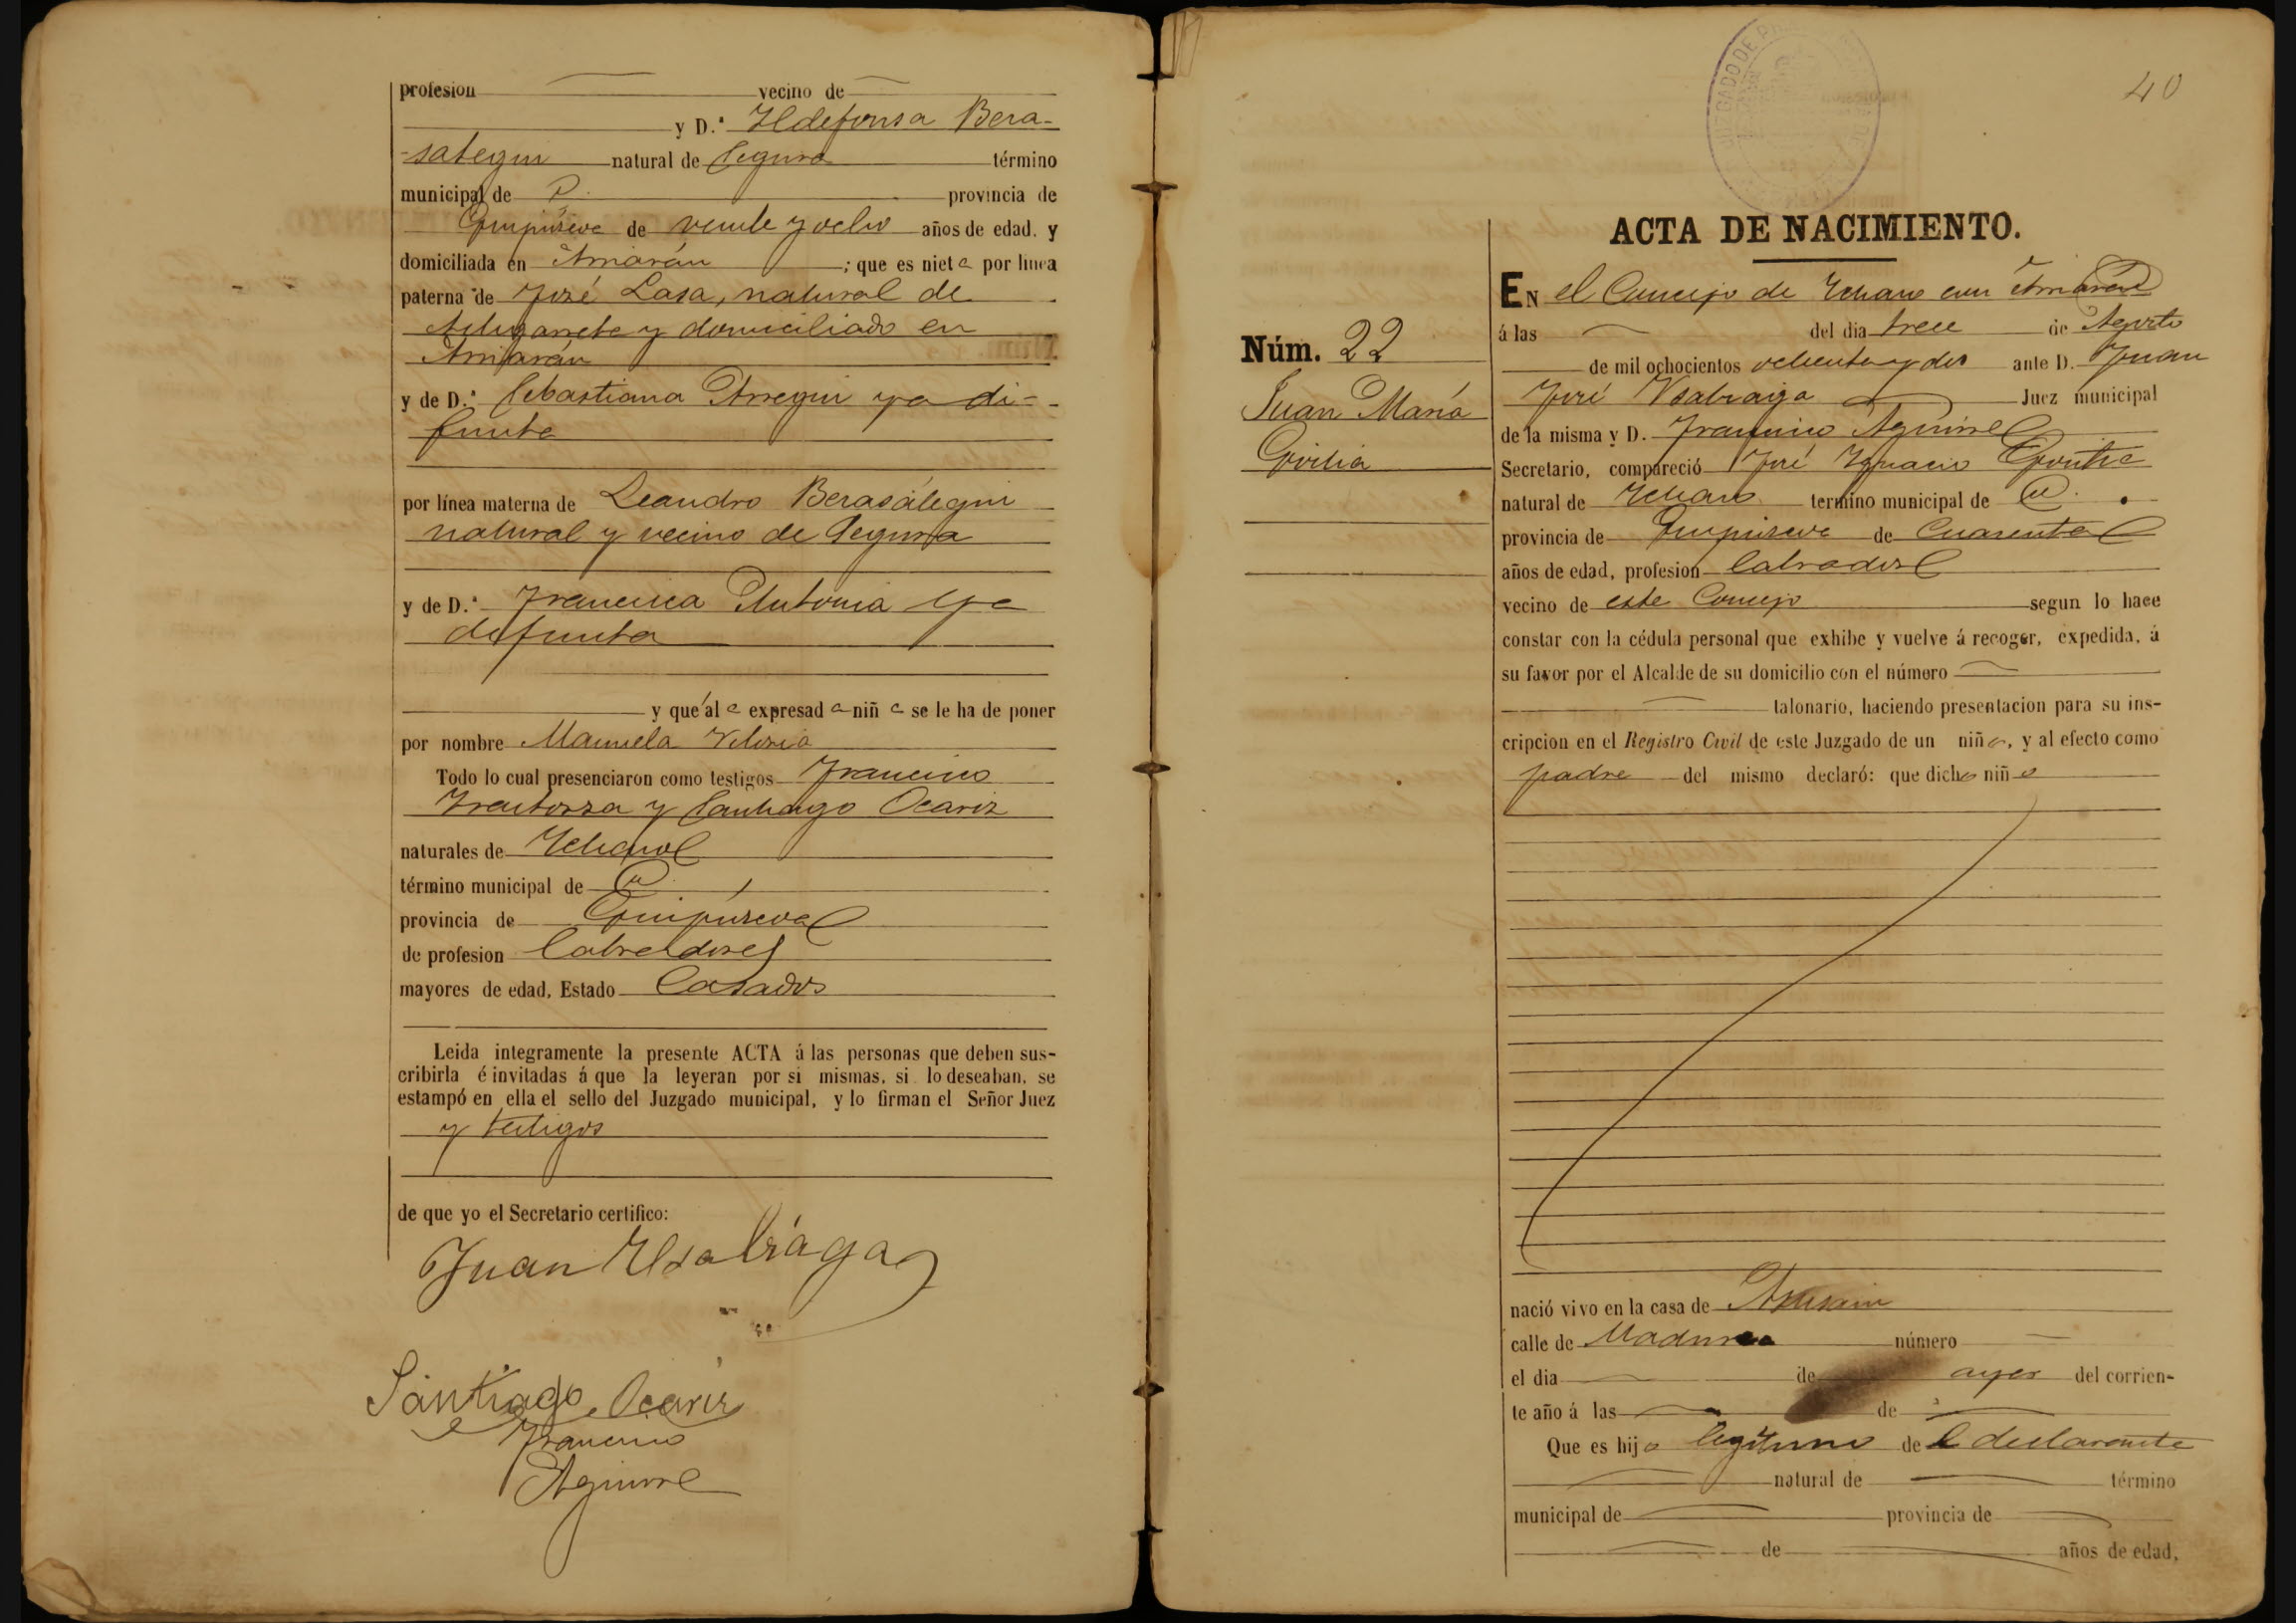 profesion vecino de
y D.ª Ildefonsa Bera-
-sategui natural de Segura término
municipal de provincia de
Guipúzcoa de veinte y ocho años de edad, y
domiciliada en Arriarán ; que es nieta por línea
paterna de José Lasa, natural de
Astigarreta y domiciliado en
Arriarán
y de D.ª Sebastiana Arregui ya di-
funta
por línea materna de Leandro Berasategui
natural y vecino de Segura
y de D.ª Francisca Antonia ya
difunta
y que al a expresad a niñ a se le ha de poner
por nombre Manuela
Todo lo cual presenciaron como testigos Francisco
y Santiago Ocariz
naturales de Ichaso
término municipal de id.
provincia de Guipúzcoa
de profesion labradores
mayores de edad, Estado Casados
Leida integramente la presente ACTA á las personas que deben sus-
cribirla é invitadas á que la leyeran por si mismas, si lo deseaban, se
estampó en ella el sello del Juzgado municipal, y lo firman el Señor Juez
y testigos
de que yo el Secretario certifico:
Juan Usabiaga
Santiago Ocariz
Francisco
Aguirre
40
ACTA DE NACIMIENTO.
Núm. 22
Juan María
Goitia
EN el Concejo de Ichaso con Arriarán
á las del dia trece de Agosto
de mil ochocientos ochenta y dos ante D. Juan
José Usabiaga Juez municipal
de la misma y D. Francisco Aguirre
Secretario, compareció José Ignacio Goitia
natural de Ichaso termino municipal de id.
provincia de Guipúzcoa de Cuarenta
años de edad, profesion labrador
vecino de este Concejo segun lo hace
constar con la cédula personal que exhibe y vuelve á recoger, expedida, á
su favor por el Alcalde de su domicilio con el número
talonario, haciendo presentacion para su ins-
cripcion en el Registro Civil de este Juzgado de un niño, y al efecto como
padre del mismo declaró: que dicho niño
nació vivo en la casa de
calle de número
el dia de ayer del corrien-
te año á las de
Que es hijo legítimo de l declarante
natural de término
municipal de provincia de
de años de edad,